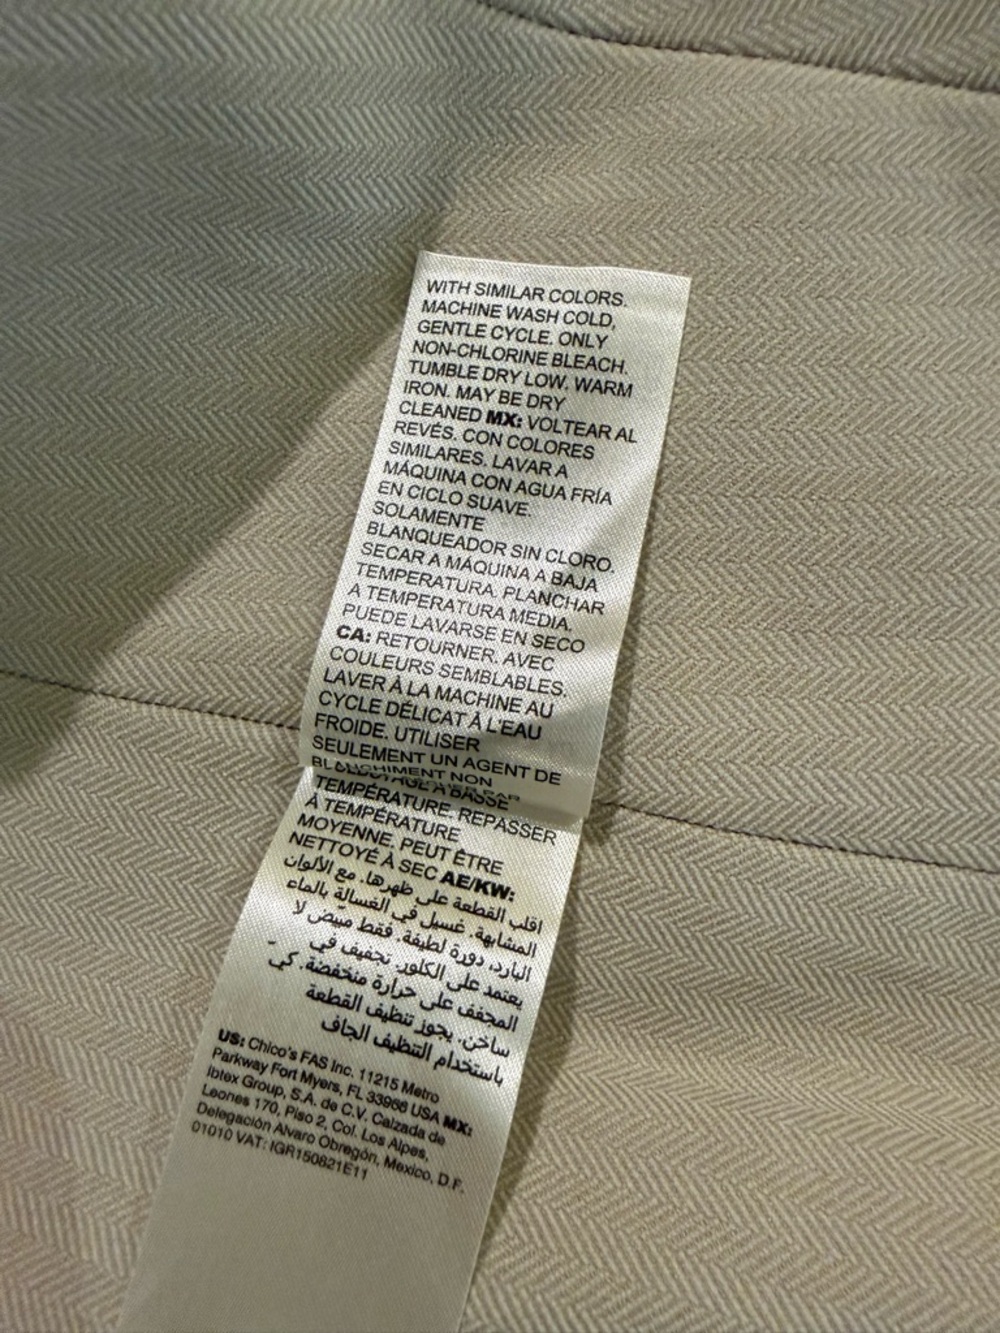 WITH SIMILAR COLORS.
MACHINE WASH COLD,
GENTLE CYCLE. ONLY
NON-CHLORINE BLEACH.
TUMBLE DRY LOW. WARM
IRON. MAY BE DRY
CLEANED MX: VOLTEAR AL
REVÉS. CON COLORES
SIMILARES. LAVAR A
MÁQUINA CON AGUA FRÍA
EN CICLO SUAVE.
SOLAMENTE
BLANQUEADOR SIN CLORO.
SECAR A MÁQUINA A BAJA
TEMPERATURA. PLANCHAR
A TEMPERATURA MEDIA.
PUEDE LAVARSE EN SECO
CA: RETOURNER. AVEC
COULEURS SEMBLABLES.
LAVER À LA MACHINE AU
CYCLE DÉLICAT À L'EAU
FROIDE. UTILISER
SEULEMENT UN AGENT DE
NON
À BASSE
TEMPÉRATURE. REPASSER
À TEMPÉRATURE
MOYENNE. PEUT ÊTRE
NETTOYÉ À SEC AE/KW:
اقلب القطعة على ظهرها. مع الألوان
المشابهة. غسيل في الغسالة بالماء
البارد، دورة لطيفة. فقط مبيض لا
يعتمد على الكلور. تجفيف في
المجفف على حرارة منخفضة. كيّ
ساخن. يجوز تنظيف القطعة
باستخدام التنظيف الجاف
US: Chico's FAS Inc. 11215 Metro
Parkway Fort Myers, FL 33966 USA MX:
Ibtex Group, S.A. de C.V. Calzada de
Leones 170, Piso 2, Col. Los Alpes,
Delegación Alvaro Obregón, Mexico, D.F.
01010 VAT: IGR150821E11